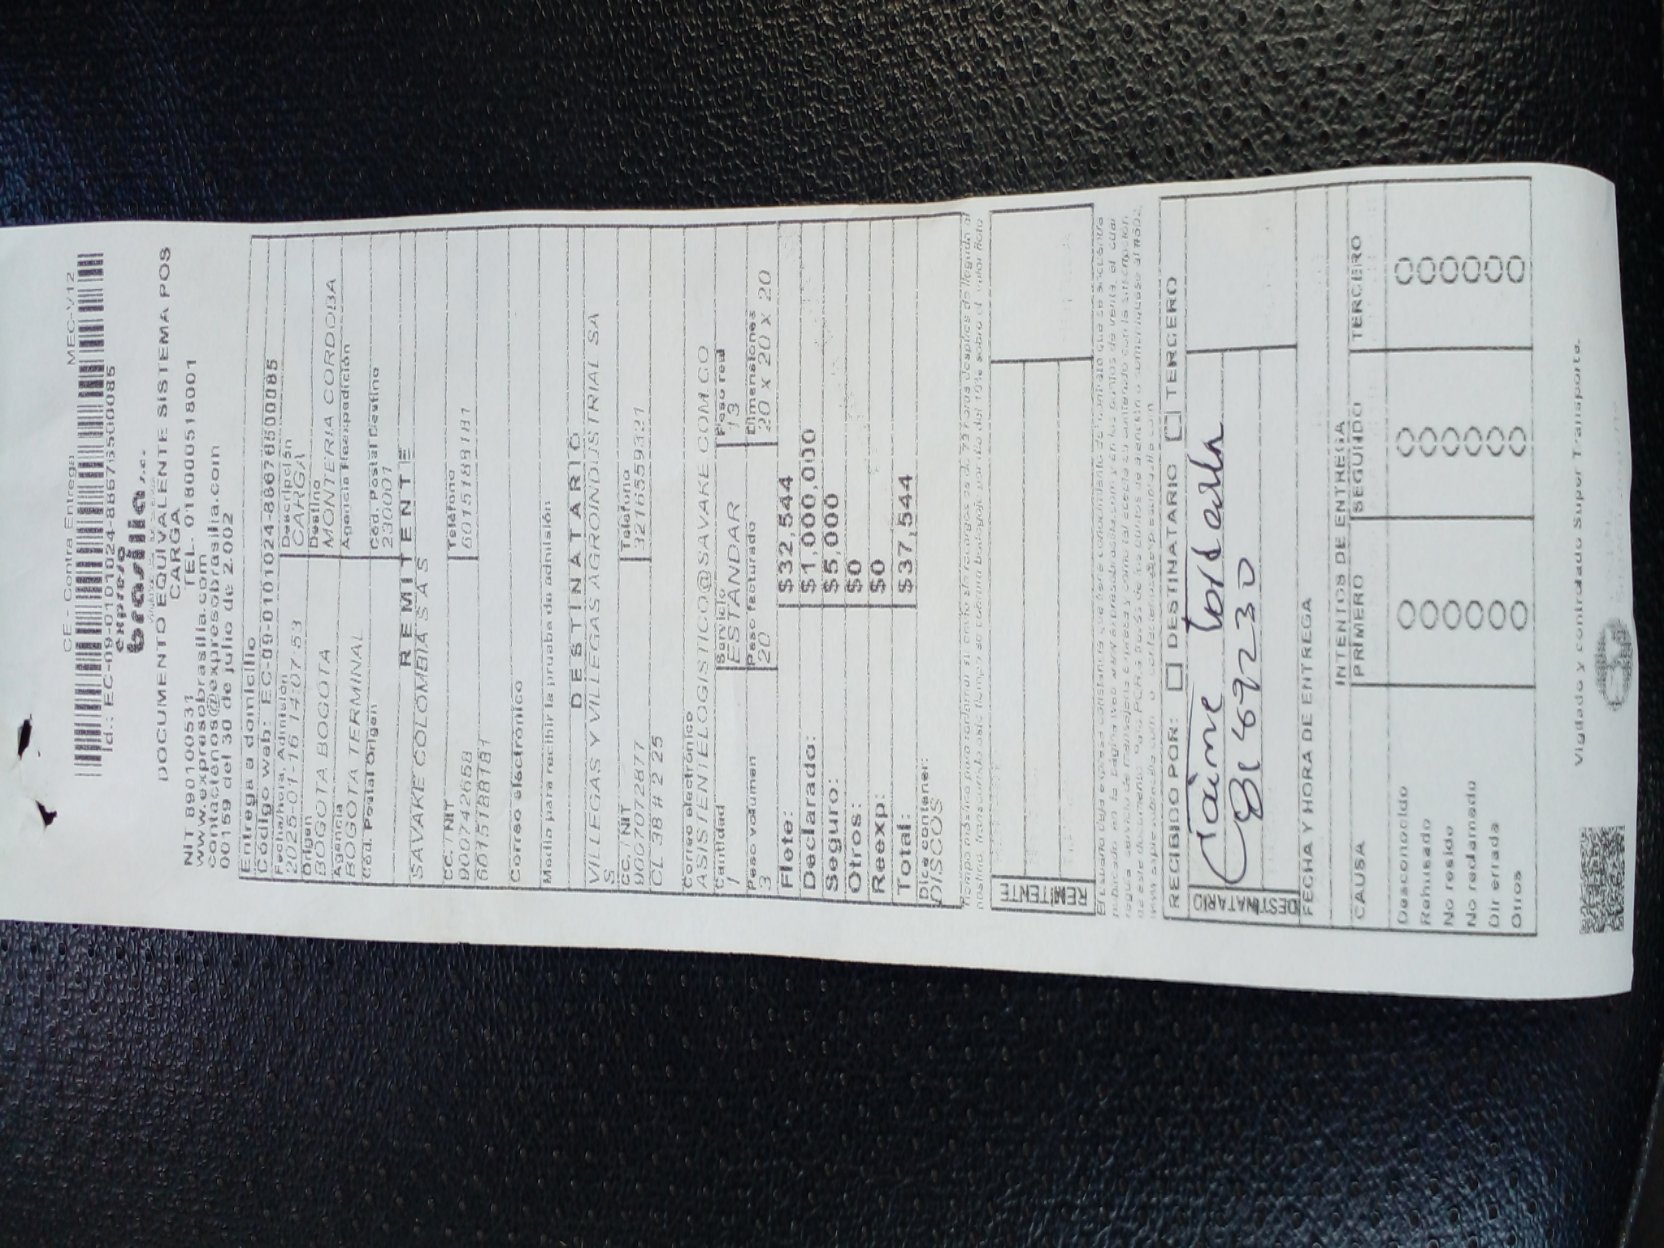 CE - Contra Entrega MEC-V12
expreso
brasilia s.a.
DOCUMENTO EQUIVALENTE SISTEMA POS
CARGA
NIT 890100531 TEL- 018000518001
www.expresobrasilia.com
contactenos@expresobrasilia.com
00159 del 30 de julio de 2.002
Entrega a domicilio
Fecha/hora Admisión Descripción
2025-01-16 14:07:53 CARGA
Origen Destino
BOGOTA BOGOTA MONTERIA CORDOBA
Agencia Agencia Reexpedición
BOGOTA TERMINAL
Cód. Postal Origen Cód. Postal Destino
230001
REMITENTE
SAVAKE COLOMBIA S A S
CC. / NIT Teléfono
900742658 6015188181
6015188181
Correo eléctrónico
Medio para recibir la prueba de admisión
DESTINATARIO
VILLEGAS Y VILLEGAS AGROINDUSTRIAL SA
S
CC. / NIT Teléfono
900707287 3216559321
CL 38 # 2 25
Correo electrónico
ASISTENTELOGISTICO@SAVAKE.COM.CO
Cantidad Servicio Peso real
1 ESTANDAR 13
Peso volumen Peso facturado Dimensiones
3 20 20 x 20 x 20
Flete: $32,544
Declarado: $1,000,000
Seguro: $5,000
Otros: $0
Reexp: $0
Total: $37,544
Dice contener:
DISCOS
REMITENTE
RECIBIDO POR: DESTINATARIO TERCERO
DESTINATARIO
Jaime
FECHA Y HORA DE ENTREGA
INTENTOS DE ENTREGA
CAUSA PRIMERO SEGUNDO TERCERO
Desconocido
Rehusado
No reside
No reclamado
Dir errada
Otros
Vigilado y controlado Super Transporte.